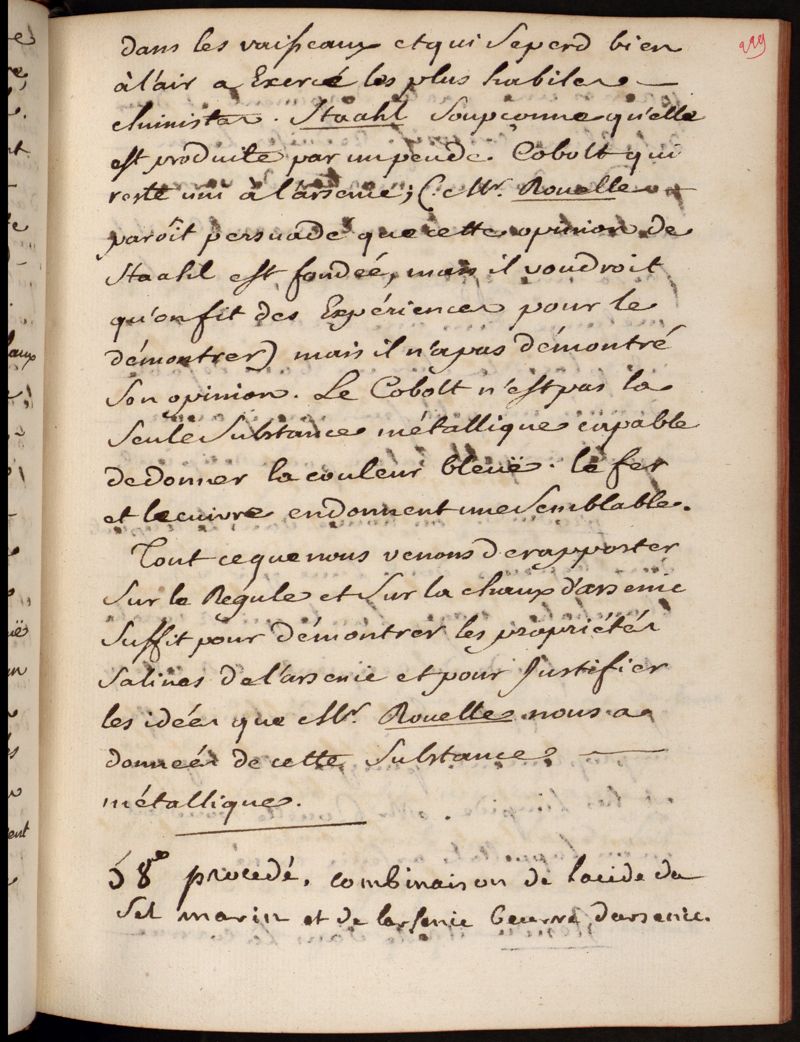 229
dans les vaisseaux et qui se perd bien
à l'air a Exercé les plus habiles —
chimistes. Staahl soupçonne qu'elle
est produite par un peu de Cobolt qui
reste uni à l'arsenic; (Mr. Rouelle
paroît persuadé que cette opinion de
Staahl est fondée, mais il voudroit
qu'on fit des Expériences pour le
démontrer) mais il n'a pas démontré
son opinion. Le Cobolt n'est pas la
seule substance métallique capable
de donner la couleur bleuë. le fer
et le cuivre en donnent une semblable.
Tout ce que nous venons de rapporter
sur le Regule et sur la chaux d'arsenic
suffit pour démontrer les propriétés
salines de l'arsenic et pour Justifier
les idées que Mr. Rouelle nous a
données de cette substance —
métallique.
58e procedé. combinaison de lacide du
Sel marin et de larsenic Beurre darsenic.